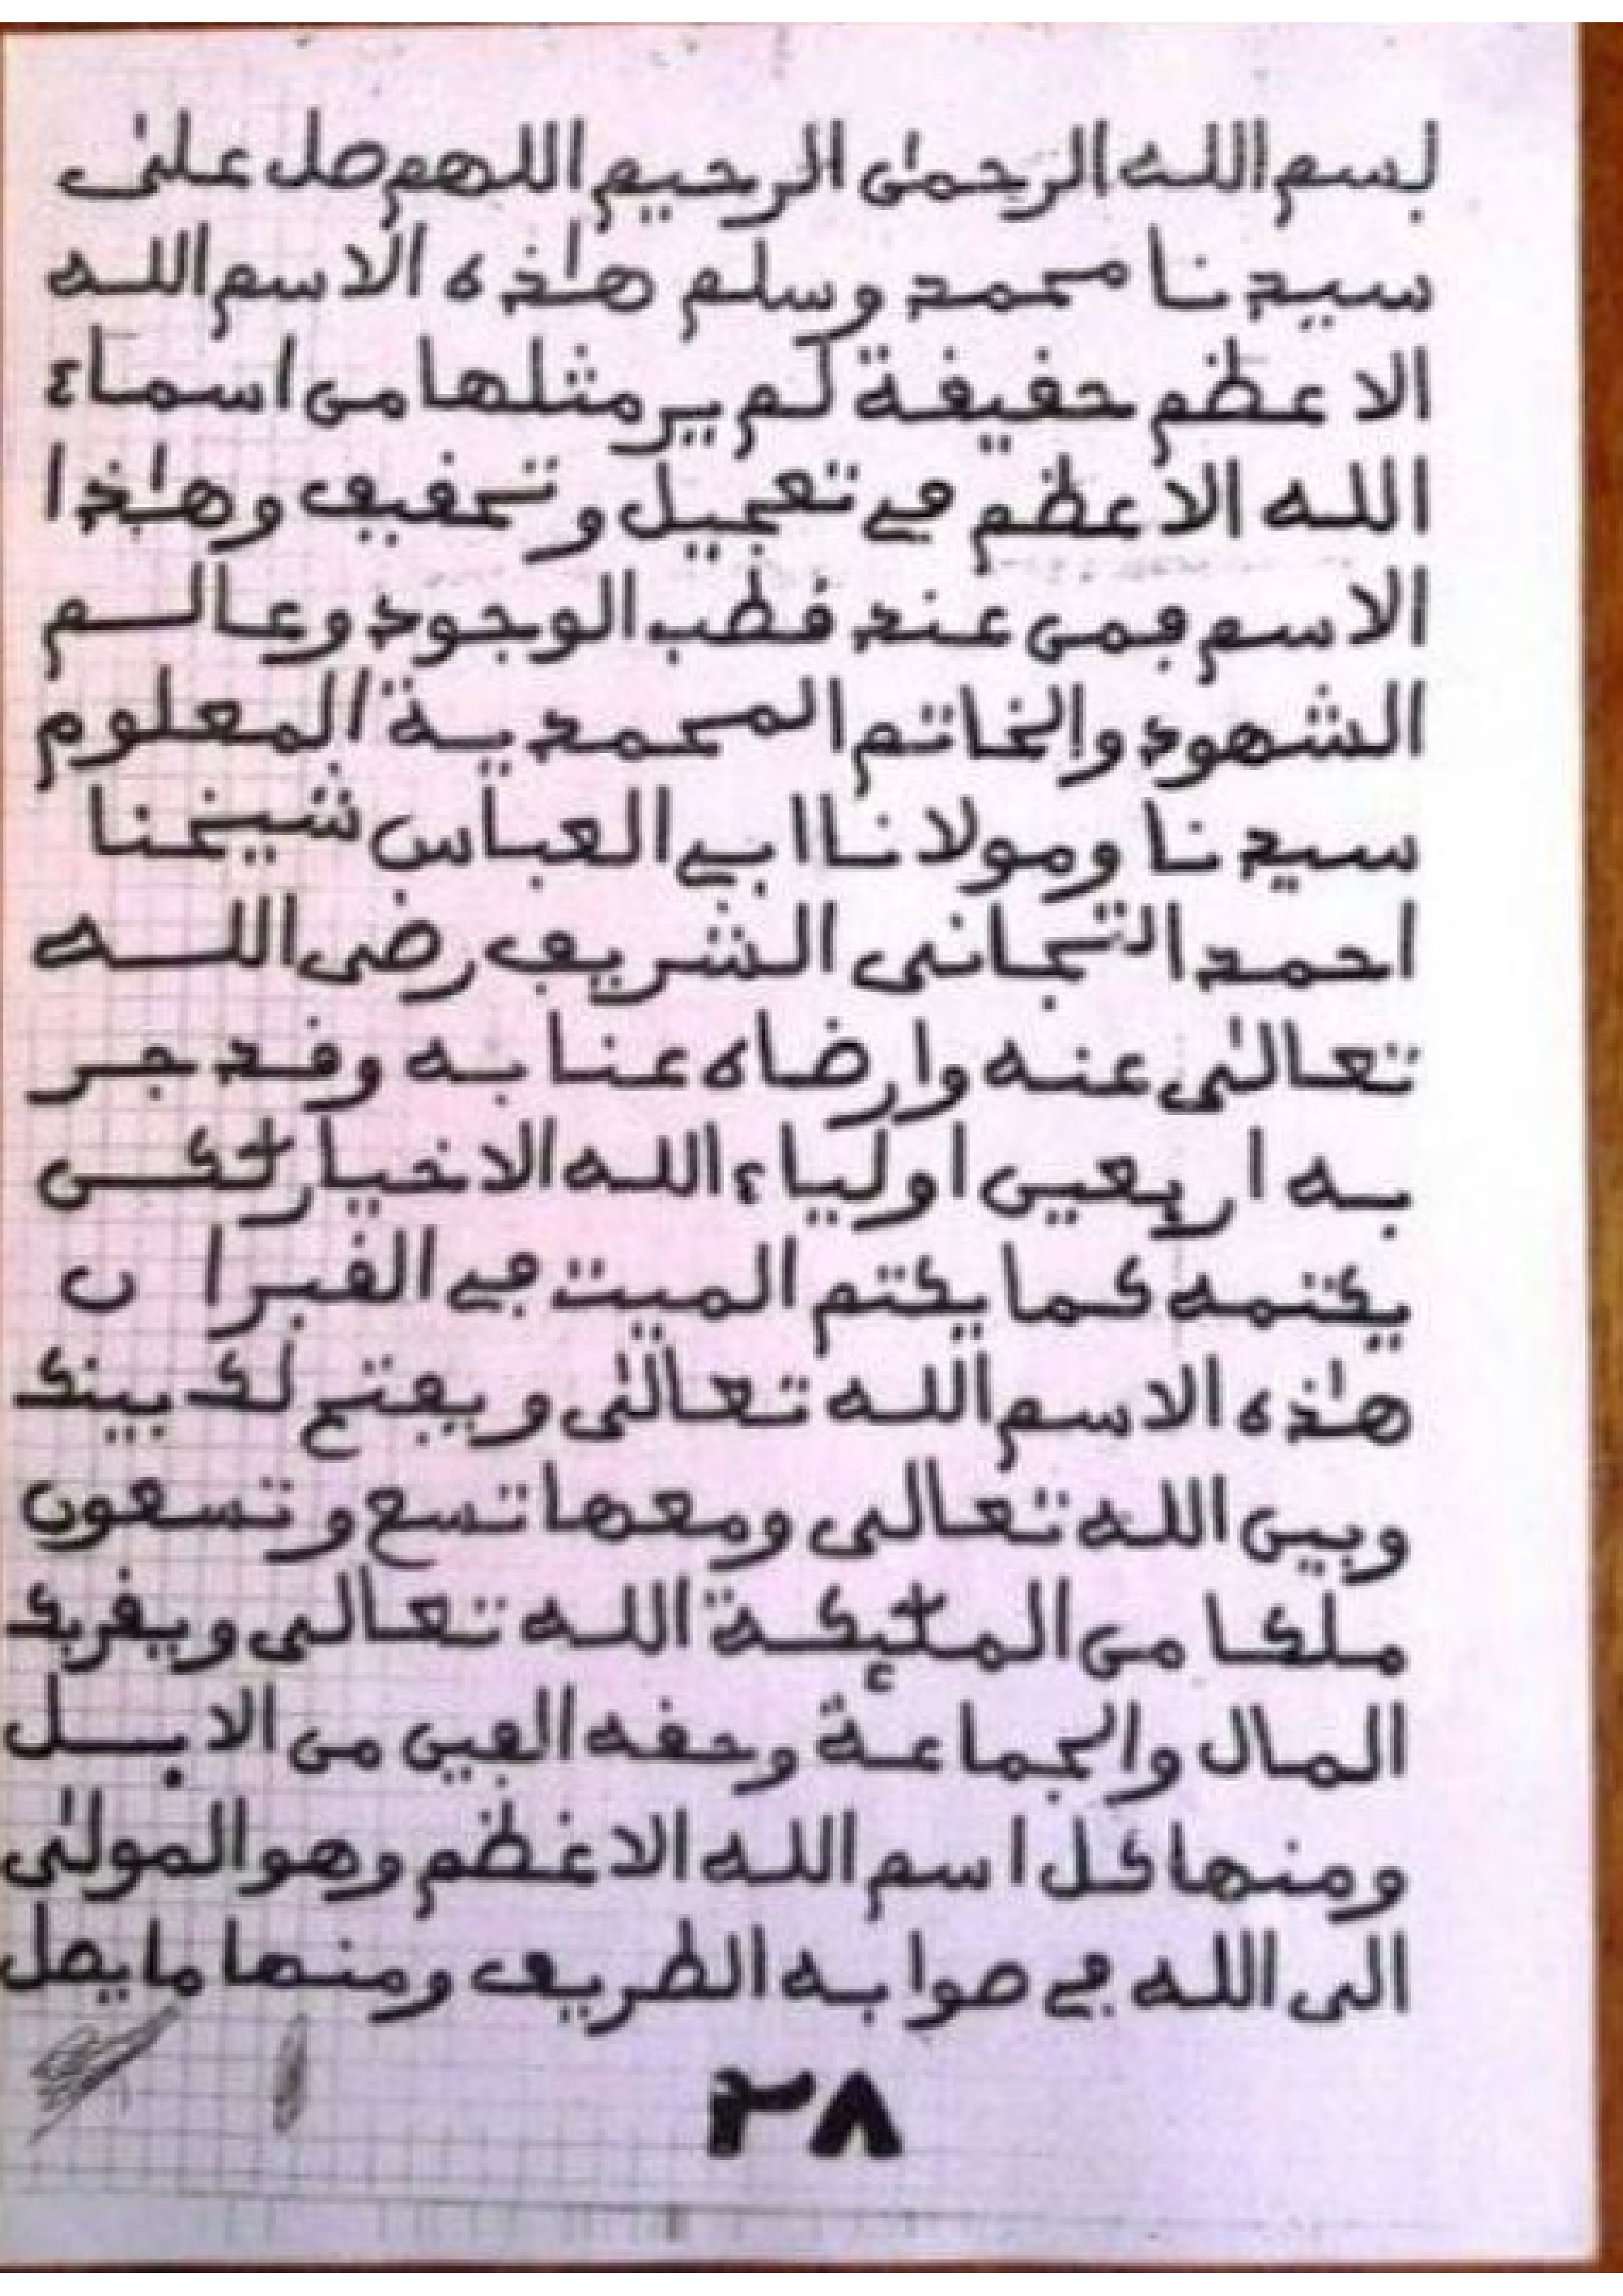 بسم الله الرحمٰن الرحيم اللهم صل علىٰ
سيدنا محمد وسلم هٰذه الاسم الله
الاعظم حقيقة لم ير مثلها من اسماء
الله الاعظم في تعجيل وتحقيق وهٰذا
الاسم فمن عند قطب الوجود وعالم
الشهود والخاتم المحمدية المعلوم
سيدنا ومولانا ابي العباس شيخنا
احمد التجانى الشريف رضى الله
تعالىٰ عنه وارضاه عنا به وقد جر
به اربعين اولياء الله الاخيار لٰكن
يكتمه كما يكتم الميت في القبر ان
هٰذه الاسم الله تعالىٰ ويفتح لك بينك
وبين الله تعالى ومعها تسع وتسعون
ملكا من الملٰئكة الله تعالى ويقربك
المال والجماعة وحقه الفين من الابل
ومنها كل اسم الله الاغظم وهو المولىٰ
الى الله في صوابه الطريق ومنها ما يصل
٣٨